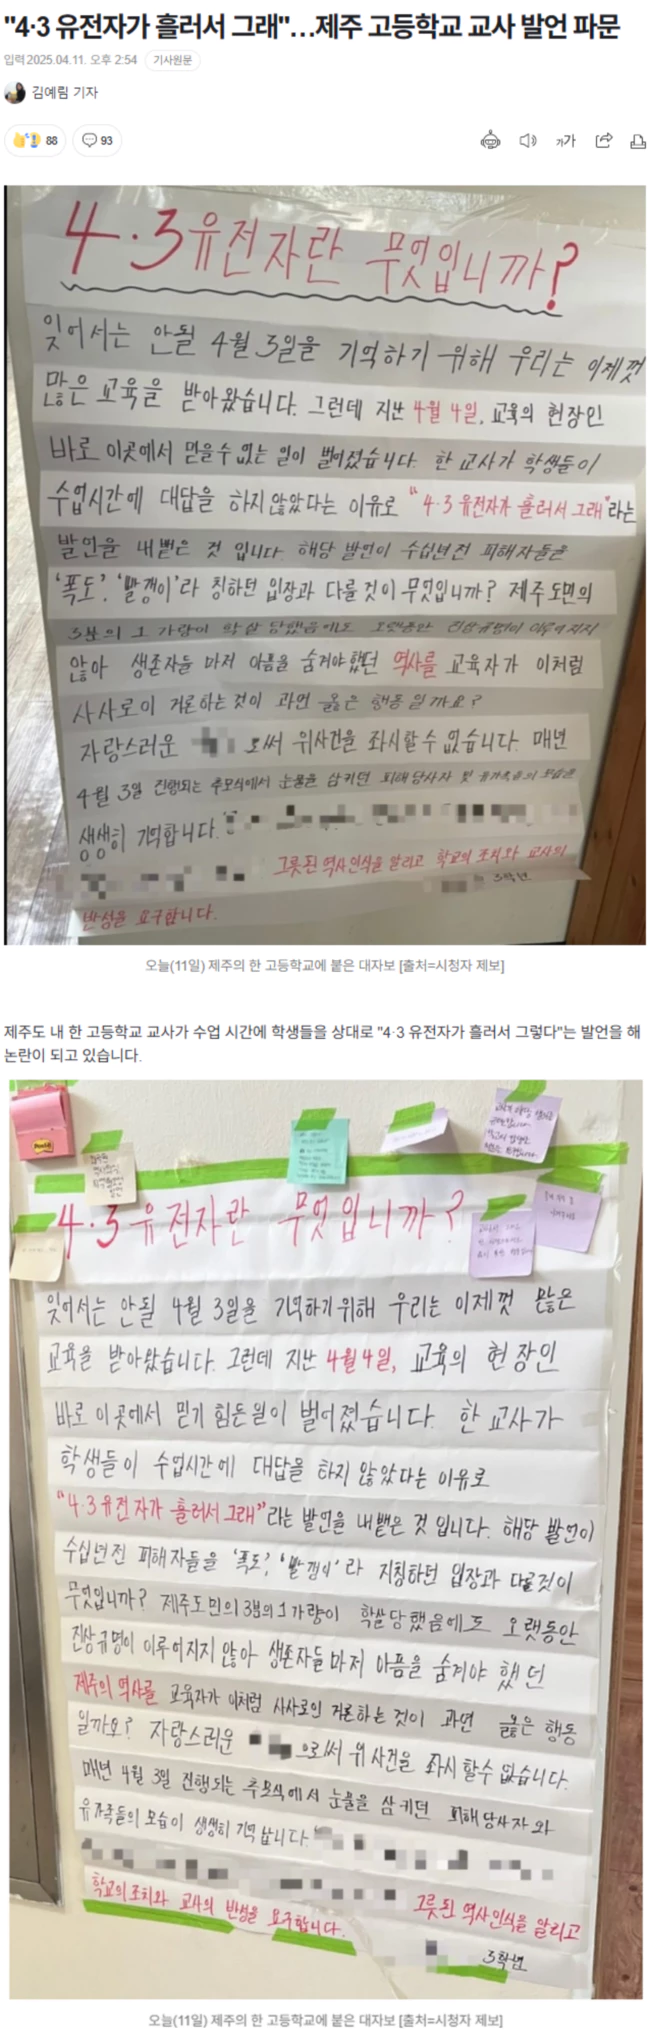 "4·3 유전자가 흘러서 그래"…제주 고등학교 교사 발언 파문
입력 2025.04.11. 오후 2:54 기사원문
김예림 기자
88 93 가가
4·3 유전자란 무엇입니까?
잊어서는 안될 4월 3일을 기억하기 위해 우리는 이제껏
많은 교육을 받아왔습니다. 그런데 지난 4월 4일, 교육의 현장인
바로 이곳에서 믿을수 없는 일이 벌어졌습니다. 한 교사가 학생들이
수업시간에 대답을 하지 않았다는 이유로 "4·3 유전자가 흘러서 그래"라는
발언을 내뱉은 것 입니다 해당 발언이 수십년전 피해자들을
'폭도', '빨갱이'라 칭하던 입장과 다를것이 무엇입니까? 제주도민의
3분의 1 가량이 학살 당했음에도 오랫동안 진상규명이 이루어지지
않아 생존자들 마저 아픔을 숨겨야했던 역사를 교육자가 이처럼
사사로이 거론하는것이 과연 옳은 행동 일까요?
자랑스러운 로써 위사건을 좌시할수 없습니다. 매년
4월 3일 진행되는 추모식에서 눈물을 삼키던 피해당사자 및 유가족들의 모습을
생생히 기억합니다.
그릇된 역사인식을 알리고 학교의 조치와 교사의
3학년
반성을 요구합니다.
오늘(11일) 제주의 한 고등학교에 붙은 대자보 [출처=시청자 제보]
제주도 내 한 고등학교 교사가 수업 시간에 학생들을 상대로 "4·3 유전자가 흘러서 그렇다"는 발언을 해
논란이 되고 있습니다.
Post-it
4·3 유전자란 무엇입니까?
잊어서는 안될 4월 3일을 기억하기위해 우리는 이제껏 많은
교육을 받아왔습니다. 그런데 지난 4월 4일, 교육의 현장인
바로 이곳에서 믿기 힘든일이 벌어졌습니다. 한 교사가
학생들이 수업시간에 대답을 하지 않았다는 이유로
"4·3 유전자가 흘러서 그래"라는 발언을 내뱉은 것 입니다. 해당 발언이
수십년전 피해자들을 '폭도', '빨갱이'라 지칭하던 입장과 다를것이
무엇입니까? 제주도민의 3분의 1가량이 학살당했음에도 오랫동안
진상규명이 이루어지지 않아 생존자들마저 아픔을 숨겨야 했던
제주의 역사를 교육자가 이처럼 사사로이 거론하는 것이 과연 옳은 행동
일까요? 자랑스러운 으로써 위 사건을 좌시할수 없습니다.
매년 4월 3일 진행되는 추모식에서 눈물을 삼키던 피해당사자와
유가족들의 모습이 생생히 기억납니다.
그릇된 역사인식을 알리고
학교의 조치와 교사의 반성을 요구합니다.
3학년
오늘(11일) 제주의 한 고등학교에 붙은 대자보 [출처=시청자 제보]